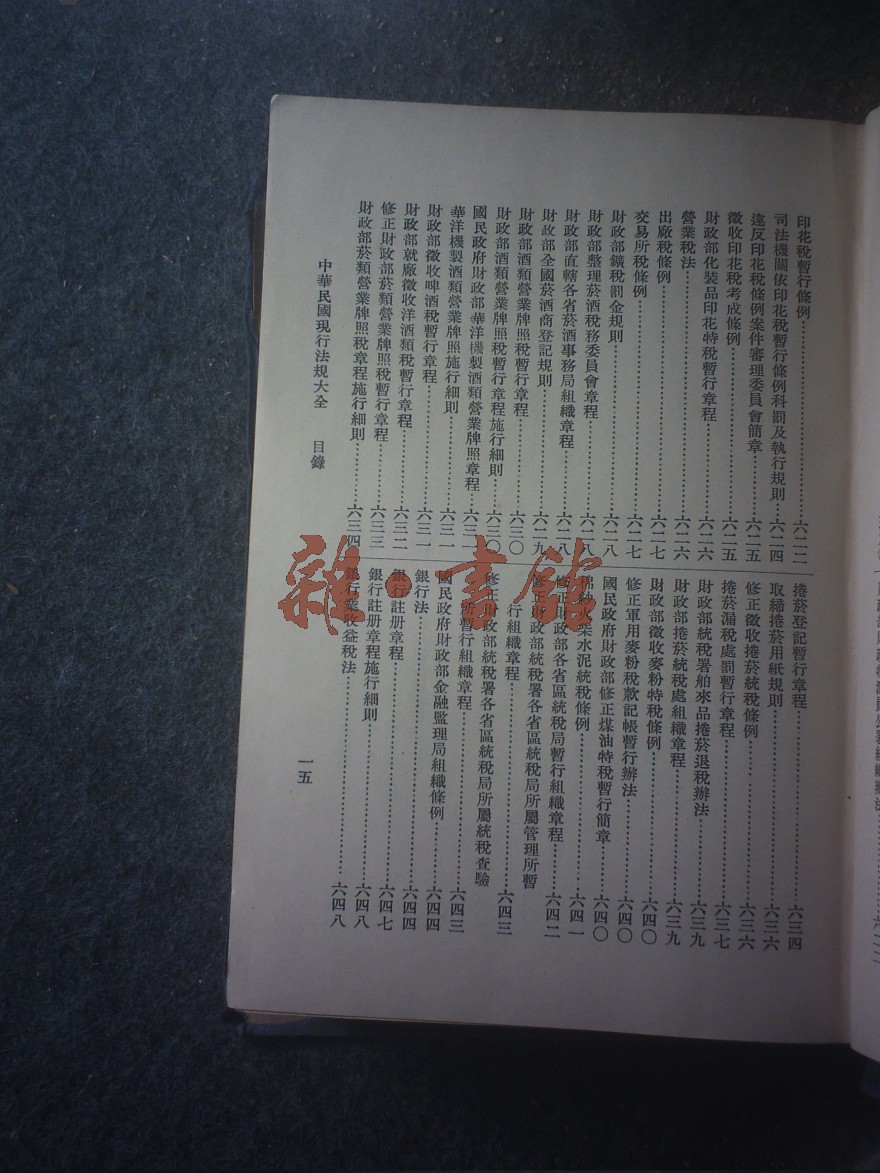 印花稅暫行條例……六二二
司法機關依印花稅暫行條例科罰及執行規則……六二四
違反印花稅條例案件審理委員會簡章……六二五
徵收印花稅考成條例……六二五
財政部化裝品印花特稅暫行章程……六二六
營業稅法……六二六
出廠稅條例……六二七
交易所稅條例……六二七
財政部鑛稅罰金規則……六二八
財政部整理菸酒稅務委員會章程……六二八
財政部直轄各省菸酒事務局組織章程……六二八
財政部全國菸酒商登記規則……六二九
財政部酒類營業牌照稅暫行章程……六三〇
財政部酒類營業牌照稅暫行章程施行細則……六三〇
國民政府財政部華洋機製酒類營業牌照章程……六三一
華洋機製酒類營業牌照施行細則……六三一
財政部徵收啤酒稅暫行章程……六三一
財政部就廠徵收洋酒類稅暫行章程……六三二
修正財政部菸類營業牌照稅暫行章程……六三三
財政部菸類營業牌照稅章程施行細則……六三四
捲菸登記暫行章程……六三四
取締捲菸用紙規則……六三六
修正徵收捲菸統稅條例……六三六
捲菸漏稅處罰暫行章程……六三七
財政部統稅署舶來品捲菸退稅辦法……六三九
財政部捲菸統稅處組織章程……六三九
財政部徵收麥粉特稅條例……六四〇
修正軍用麥粉稅款記帳暫行辦法……六四〇
國民政府財政部修正煤油特稅暫行簡章……六四〇
棉紗火柴水泥統稅條例……六四一
修正財政部各省區統稅局暫行組織章程……六四二
修正財政部統稅署各省區統稅局所屬管理所暫
行組織章程……六四三
修正財政部統稅署各省區統稅局所屬統稅查驗
所暫行組織章程……六四三
國民政府財政部金融監理局組織條例……六四四
銀行法……六四四
銀行註册章程……六四七
銀行註册章程施行細則……六四八
銀行業收益稅法……六四八
中華民國現行法規大全 目錄 一五
雜·書館